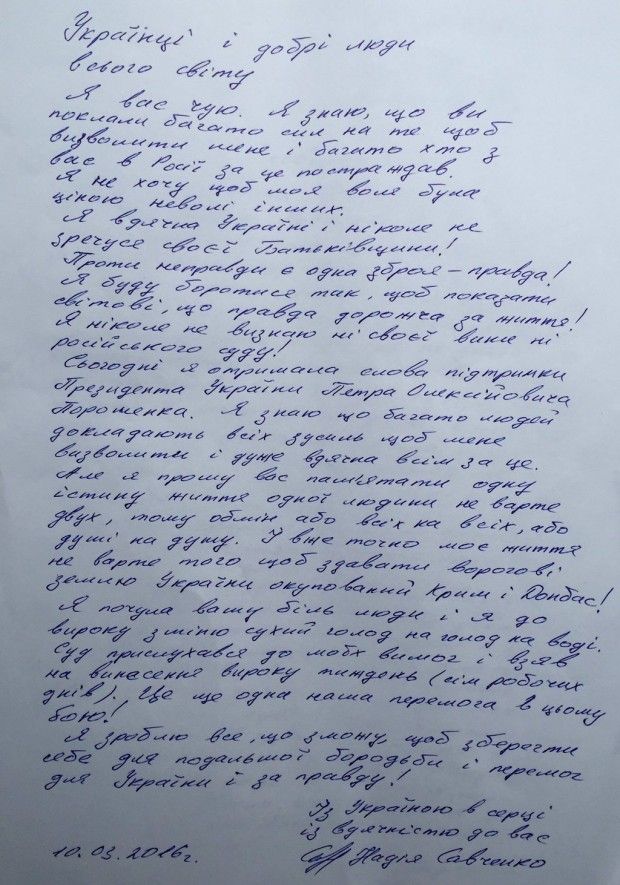 Українці і добрі люди
всього світу
Я вас чую. Я знаю, що ви
поклали багато сил на те щоб
визволити мене і багато хто з
вас в Росії за це постраждав.
Я не хочу щоб моя воля була
ціною неволі інших.
Я вдячна Україні і ніколе не
зречуся своєї Батьківщини!
Проти неправди є одна зброя – правда!
Я буду боротися так, щоб показати
світові, що правда дорожча за життя!
Я ніколе не визнаю ні своєї вини ні
російського суду!
Сьогодні я отримала слова підтримки
Президента України Петра Олексійовича
Порошенка. Я знаю що багато людей
докладають всіх зусиль щоб мене
визволити і дуже вдячна всім за це.
Але я прошу вас пам'ятати одну
істину життя одної людини не варте
двух, тому обмін або всіх на всіх, або
душі на душу. І вже точно моє життя
не варте того щоб здавати ворогові
землю України окупований Крим і Донбас!
Я почула вашу біль люди і я до
вироку зміню сухий голод на голод на воді.
Суд прислухався до моїх вимог і взяв
на винасення вироку тиждень (сім робочих
днів). Це ще одна наша перемога в цьому
бою!
Я зроблю все, що зможу, щоб зберегти
себе для подальшої бородьби і перемог
для України і за правду!
Із Україною в серці
із вдячністю до вас
10.03.2016г. Надія Савченко